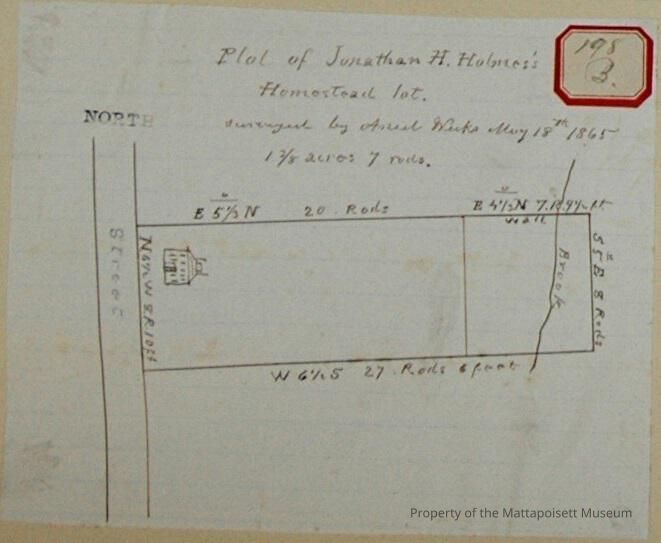 198
B.
Plot of Jonathan H. Holmes's
Homestead lot.
surveyed by Ansel Weeks May 18th 1865
1 3/8 acres 7 rods.
NORTH
Street
E 5½ N 20 Rods
E 4½ N 7 R. 9½ ft
Wall
N 6½ W 8 R 10 ft
Brook
S 5 E 8 Rods
W 6½ S 27 Rods 6 feet
Property of the Mattapoisett Museum